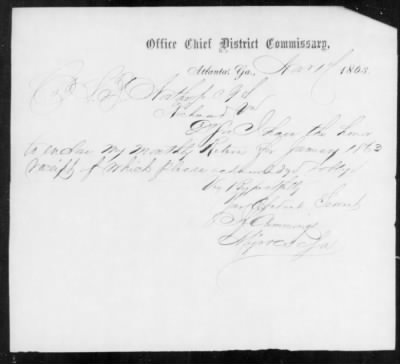 Office Chief District Commissary,
Atlanta, Ga., 1863
Northrop
Richmond Va
Sir I have the honor
to enclose my monthly Return for January 1863
receipt of which please acknowledge
Very Respectfully
Your Obedient Servt
Cummings